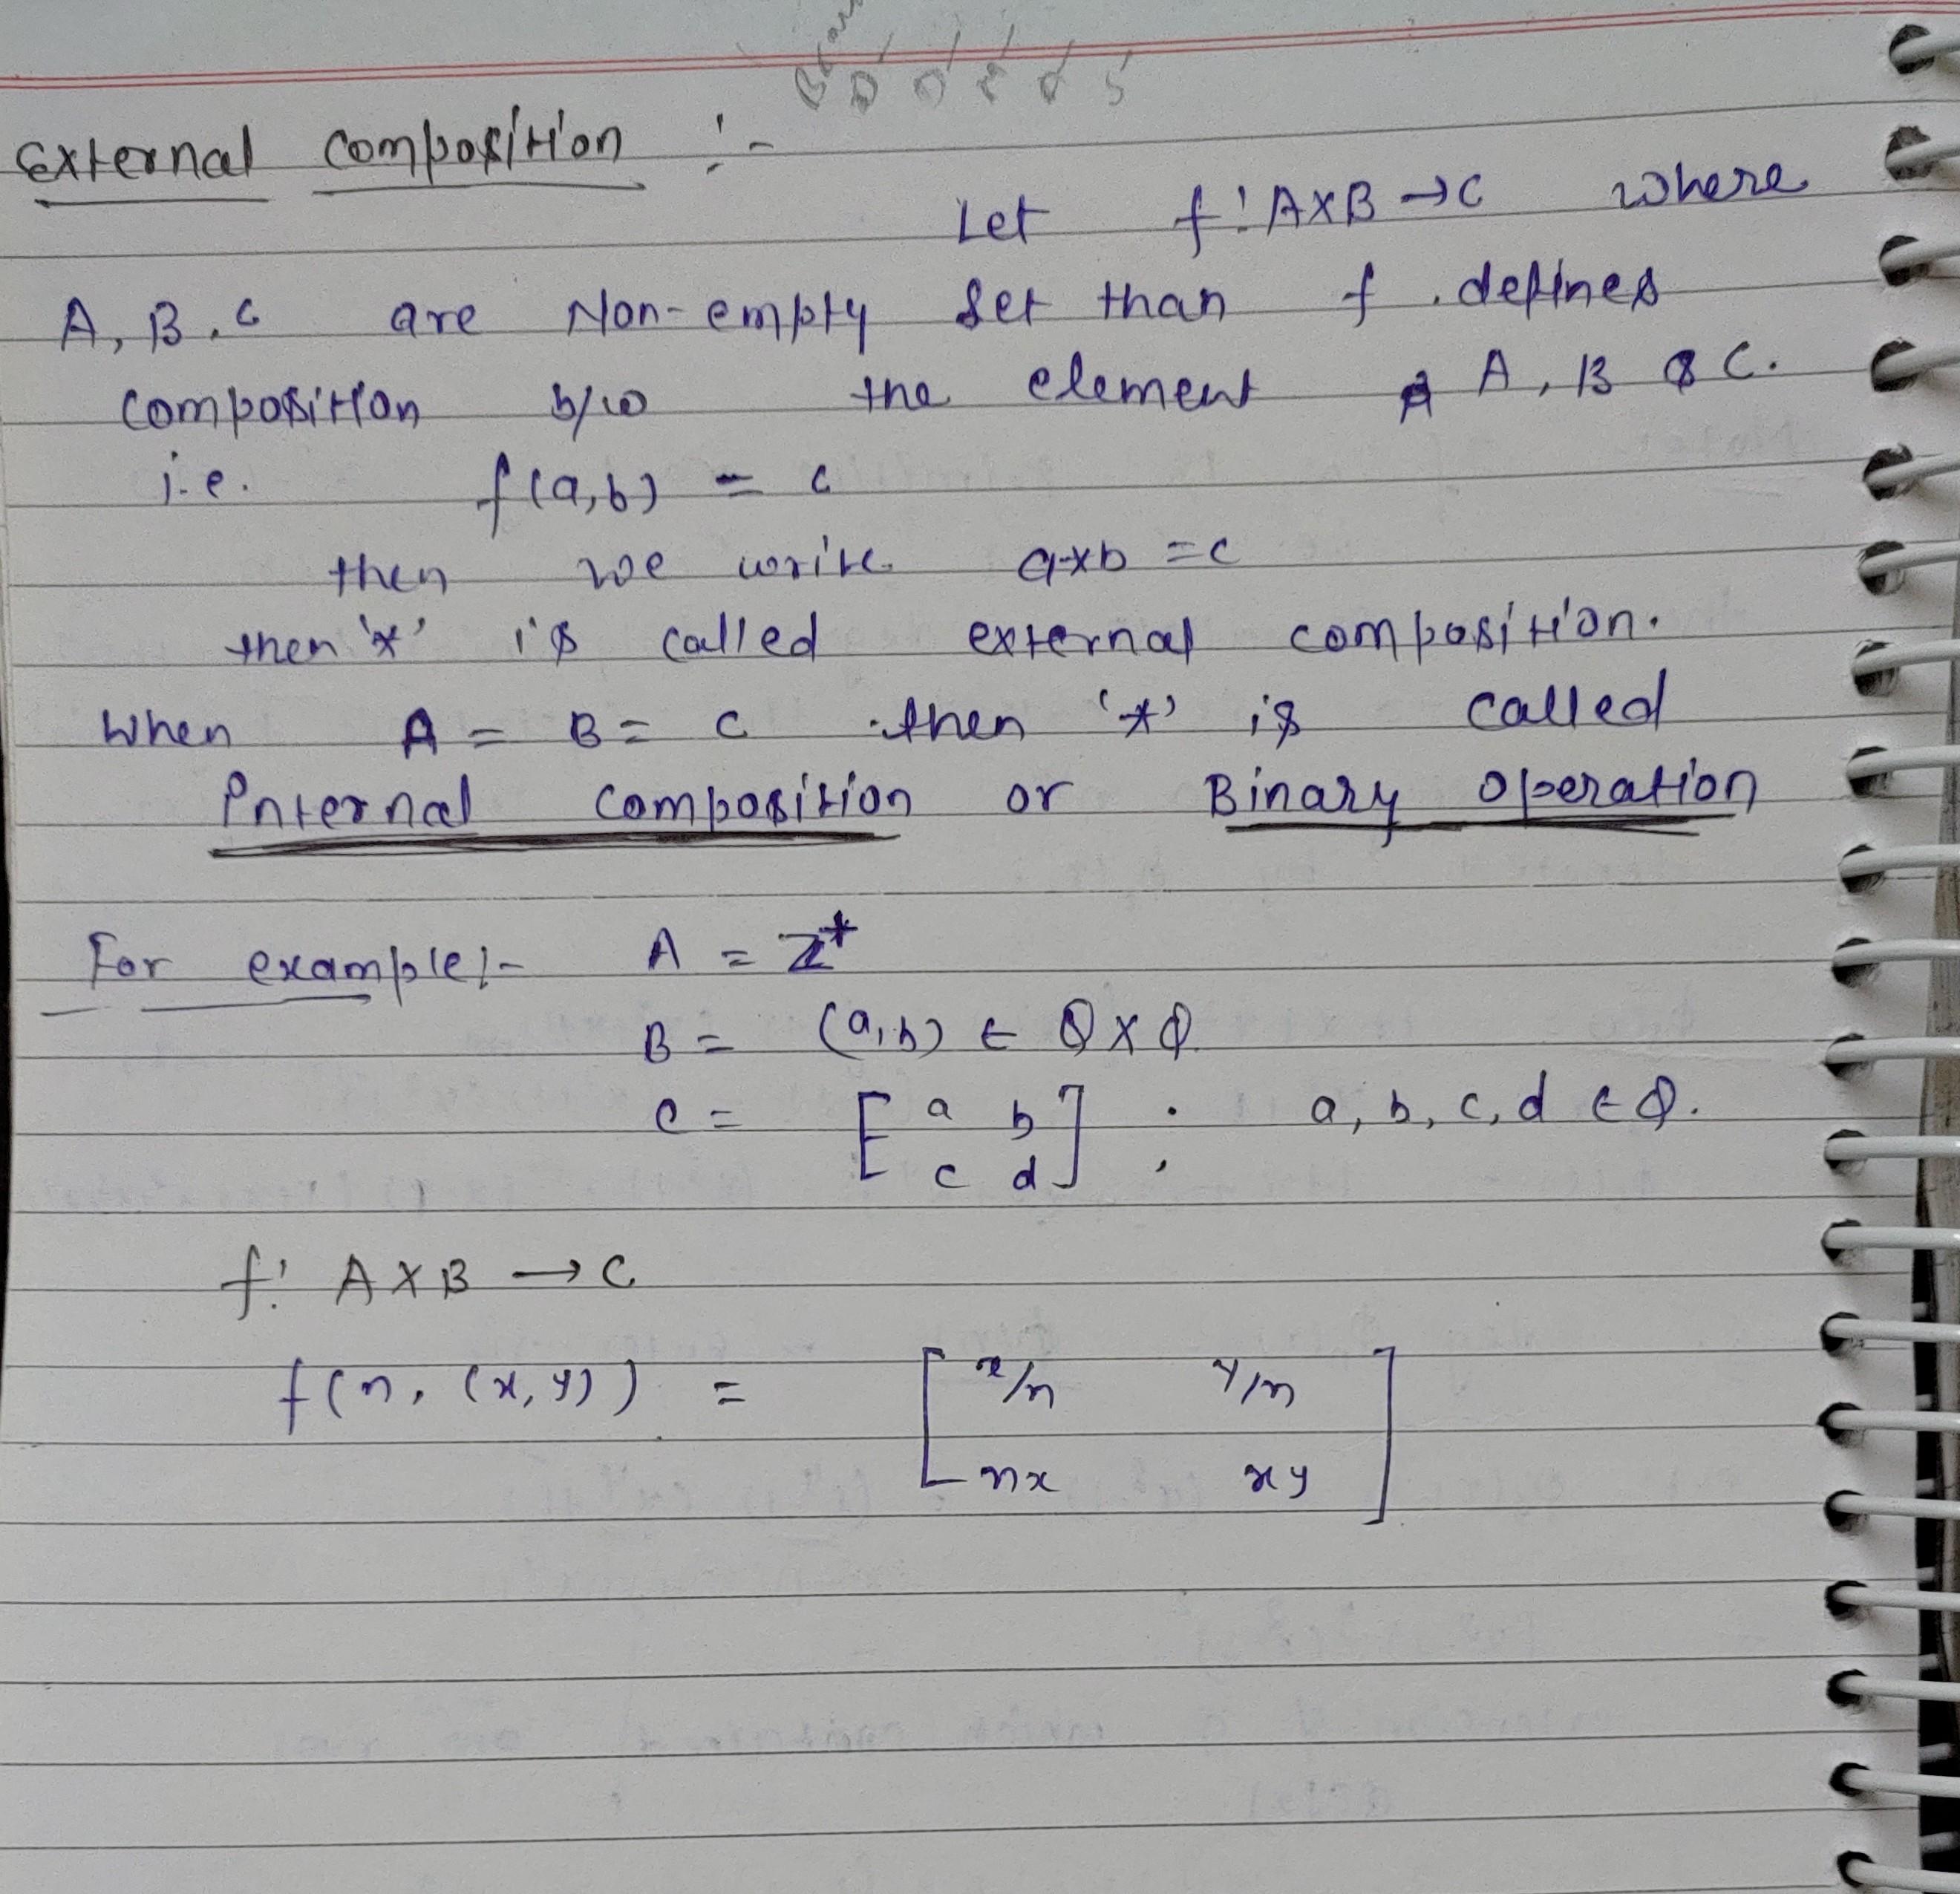 External Composition :-
Let f: A×B → C where
A, B, C are Non-empty set than f defines
composition b/w the element A, B & C.
i.e. f(a,b) = c
then we write a*b = c
then '*' is called external composition.
When A = B = C then '*' is called
Internal composition or Binary operation
For example:- A = Z⁺
B = (a,b) ∈ Q × Q
C = [ a b
c d ] ; a, b, c, d ∈ Q.
f: A×B → C
f(n, (x,y)) = [ x/n y/n
nx xy ]